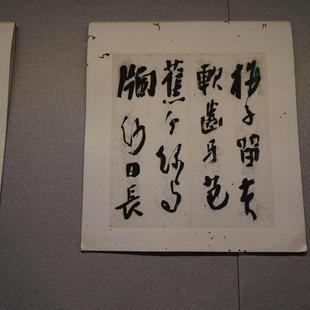 梅子留
軟齒牙芭
蕉分綠与
牕紗日長